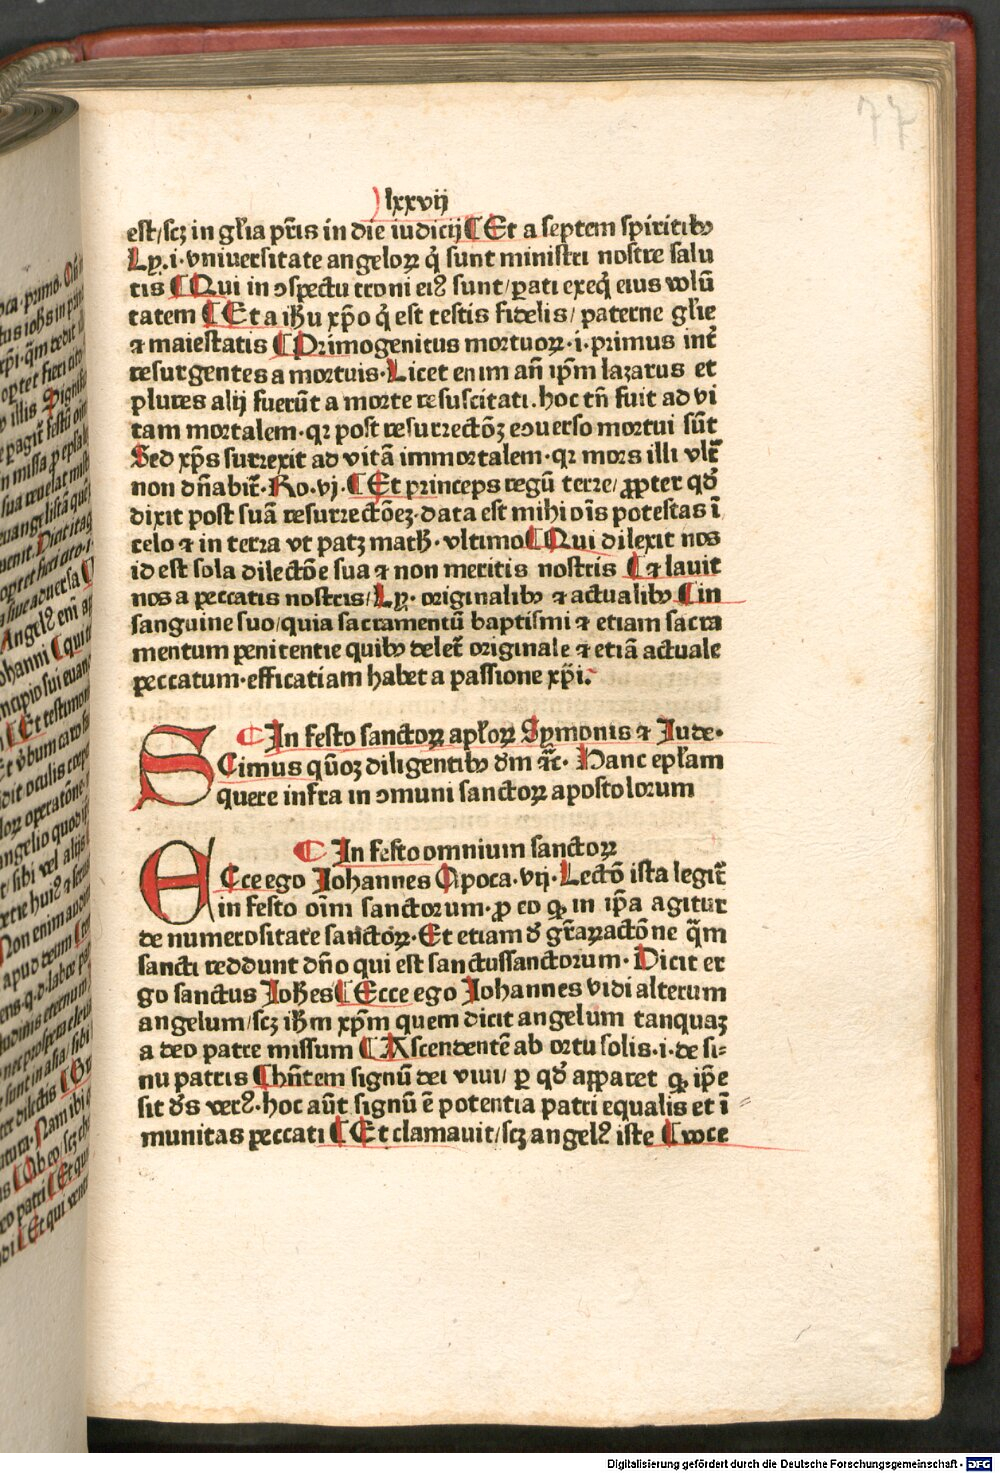 77
lxxvij
est/scꝫ in gl̄ia pr̄is in die iudicij ¶ Et a septem spiritibꝰ
Lyꝛ.i.vniuersitate angeloꝝ q̇ sunt ministri nostre salu
tis ¶ Qui in ↄspectu troni eiꝰ sunt/ꝑati exeq̇ eius volū
tatem ¶ Et a ihū xp̄o q̇ est testis fidelis/paterne gl̄ie
⁊ maiestatis ¶ Primogenitus mortuoꝝ.i.primus int̄
resurgentes a mortuis.Licet enim an̄ ip̄m lazarus et
plures alij fuerūt a morte resuscitati.hoc tn̄ fuit ad vi
tam mortalem.qꝛ post resurrectōꝫ eↄuerso mortui sūt
Sed xp̄s surrexit ad vitā immortalem.qꝛ mors illi vlt̄
non dn̄abit̄.Ro.vj.¶ Et princeps regū terre/ꝓpter qd̄
dixit post suā resurrectōeꝫ.data est mihi oīs potestas ī
celo ⁊ in terra vt patꝫ math̄.vltimo ¶ Qui dilexit nos
id est sola dilectōe sua ⁊ non meritis nostris ¶ ⁊ lauit
nos a peccatis nostris/Lyꝛ.originalibꝰ ⁊ actualibꝰ ¶ in
sanguine suo/quia sacramentū baptismi ⁊ etiam sacra
mentum penitentie quibꝰ delet̄ originale ⁊ etiā actuale
peccatum.efficatiam habet a passione xp̄i.
¶ In festo sanctoꝝ apl̄oꝝ Symonis ⁊ Jude.
SCimus qm̄oꝫ diligentibꝰ dm̄ ⁊c̄.Hanc epl̄am
quere infra in ↄmuni sanctoꝝ apostolorum
¶ In festo omnium sanctoꝝ
ECce ego Johannes Apoca.vij.Lectō ista legit̄
in festo oīm sanctorum.ꝓ eo ꝙ in ip̄a agitur
de numerositate sanctoꝝ.Et etiam d̄ gr̄aꝝactōne q̄m
sancti reddunt dn̄o qui est sanctussanctorum.Dicit er
go sanctus Joh̄es ¶ Ecce ego Johannes vidi alterum
angelum/scꝫ ih̄m xp̄m quem dicit angelum tanquaꝫ
a deo patre missum ¶ Ascendentē ab ortu solis.i.de si⸗
nu patris ¶ hn̄tem signū dei viui/ꝑ qd̄ apparet ꝙ ip̄e
sit de̅s verꝰ.hoc aūt signū ē potentia patri equalis et ī⸗
munitas peccati ¶ Et clamauit/scꝫ angelꝰ iste ¶ voce
Digitalisierung gefördert durch die Deutsche Forschungsgemeinschaft - DFG